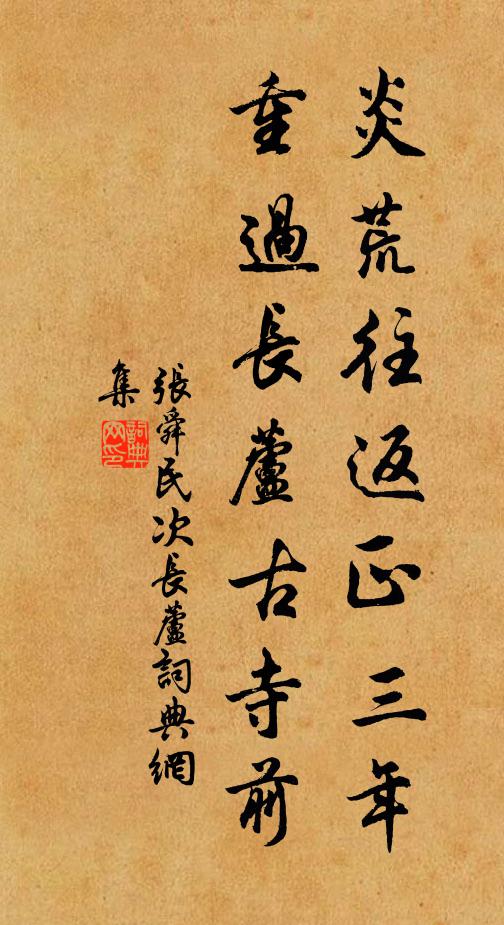 炎荒往返正三年
重過長蘆古寺前
張舜民次長蘆詞典網
集
詞典
网印